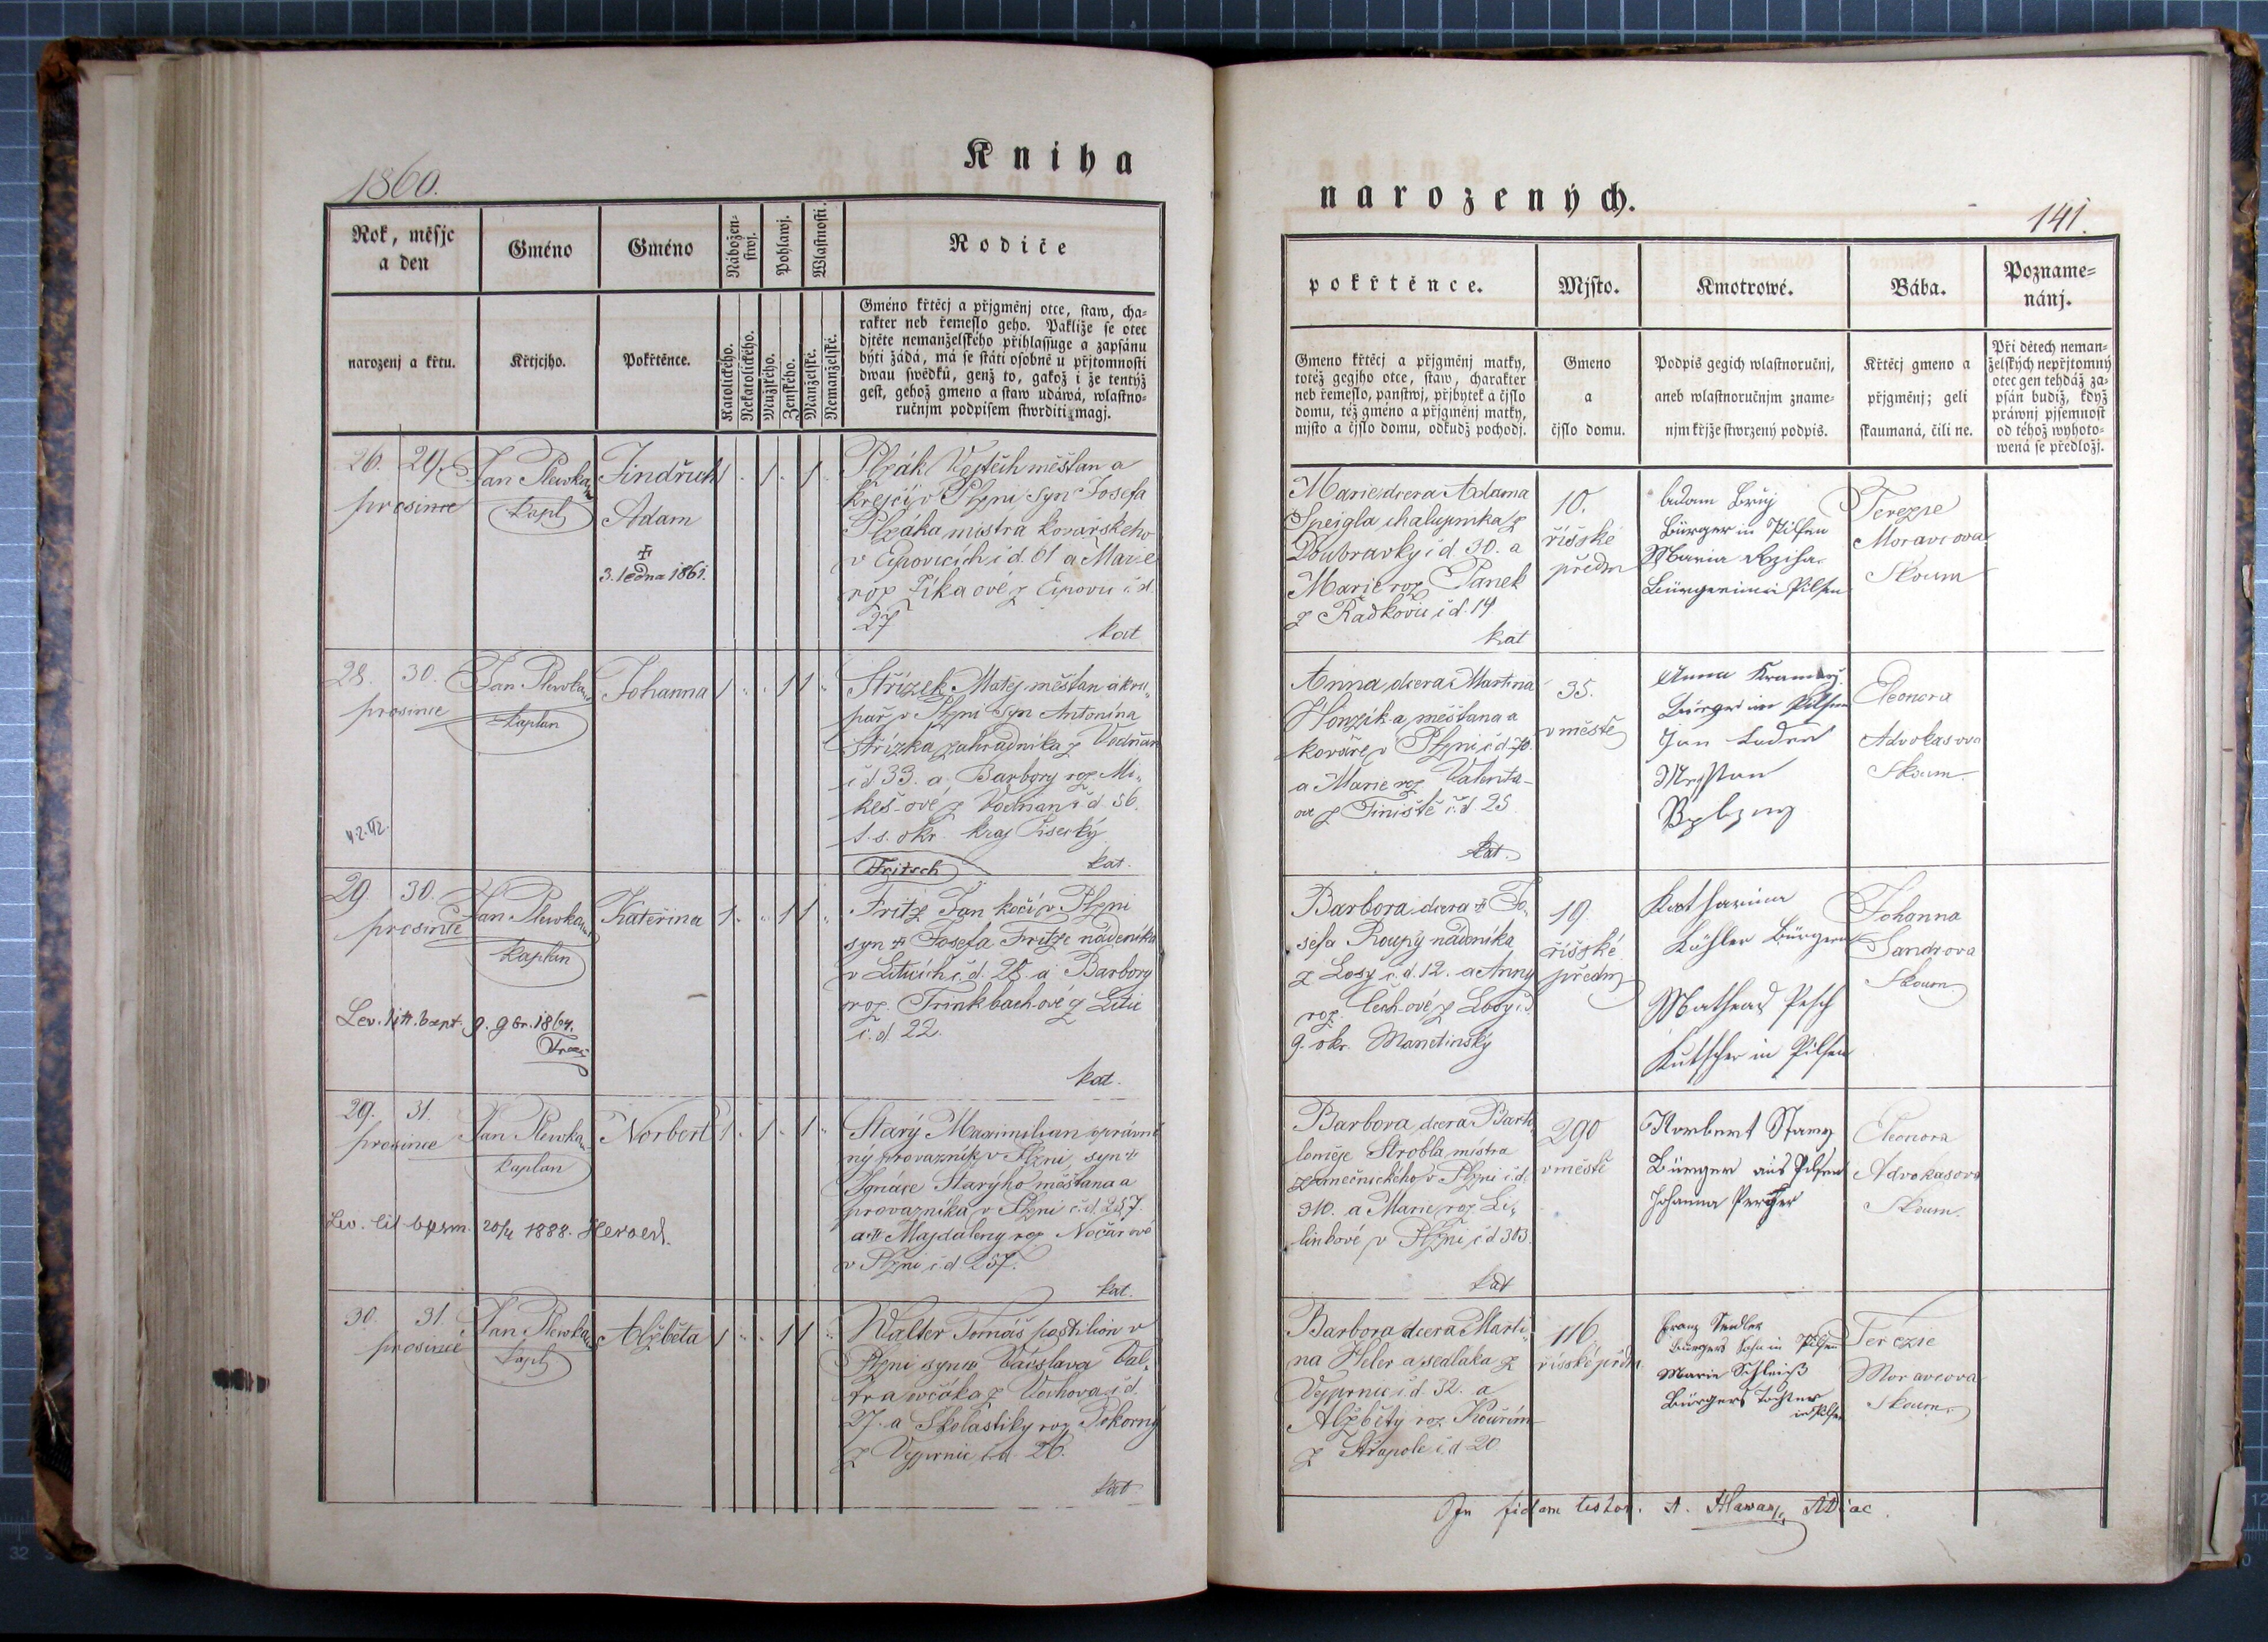 1860.
Kniha
Rok, měsjc
a den
Gméno
Gméno
Nábožen-
stwj.
Pohlawj.
Wlastnosti.
Rodiče
narozenj a křtu.
Křtjcjho.
Pokřtěnce.
Katolického.
Nekatolického.
Mužského.
Ženského.
Manželské.
Nemanželské.
Gméno křtěcj a přjgměnj otce, staw, cha-
rakter neb řemeslo geho. Pakliže se otec
djtěte nemanželského přihlassuge a zapsánu
býti žádá, má se státi osobně u přjtomnosti
dwau swědků, genž to, gakož i že tentýž
gest, gehož gmeno a staw udáwá, wlastno-
ručnjm podpisem stwrditi magj.
26. 29.
prosince
Jan Plewka
kapl
Jindřich
Adam
3. ledna 1861.
1 . 1 . 1
Plzák Vojtěch měšťan a
krejčí v Plzni, syn Josefa
Plzáka mistra kovářského
v Ejpovicích č d. 61 a Marie
roz. Píkaové z Ejpovic č. d.
27
kat
28. 30.
prosince
Jan Plewka
kaplan
Johanna
1 . . 1 1
Střízek Matěj měšťan a kru-
pař v Plzni syn Antonína
Střízka zahradníka z Vodňan
č d 33. a Barbory roz. Mi-
keš-ové z Vodňan č d. 56.
t. s. okr. kraj Písecký
kat.
29 30.
prosince
Jan Plewka
kaplan
Kateřina
1 . . 1 1
Fritsch
Fritz Jan kočí v Plzni
syn Josefa Fritze nádeníka
v Liticích č. d. 28. a Barbory
roz. Trinkbach-ové z Litic
č. d 22.
kat.
Lev. litt. bapt. 9. 9br. 1864.
29. 31.
prosince
Jan Plewka
kaplan
Norbert
1 . 1 . 1
Starý Maximilian
ný provazník v Plzni, syn
Ignáce Starýho měšťana a
provazníka v Plzni č. d. 257.
a Majdaleny roz. Nočárové
v Plzni č d 257.
kat.
Lev. lit bpsm. 20/4 1888. Herold.
30. 31.
prosince
Jan Plewka
kapl
Alžběta
1 . . 1 1
Walter Tomáš postilion v
Plzni syn Václava Val-
tra ovčáka z Vochova č d.
27. a Školastiky roz Pokorný
z Vejprnic č d. 26.
kat
narozených.
141.
pokřtěnce.
Mjsto.
Kmotrowé.
Bába.
Pozname-
nánj.
Gmeno křtěcj a přjgměnj matky,
totéž gegjho otce, staw, charakter
neb řemeslo, panstwj, přjbytek a čjslo
domu, též gméno a přjgměnj matky,
mjsto a čjslo domu, odkudž pochodj.
Gmeno
a
čjslo domu.
Podpis gegich wlastnoručnj,
aneb wlastnoručnjm zname-
njm křjže stwrzený podpis.
Křtěcj gmeno a
přjgměnj; geli
skaumaná, čili ne.
Při dětech neman-
želských nepřjtomný
otec gen tehdáž za-
psán budiž, když
práwnj pjsemnost
od téhož wyhoto-
wená se předložj.
Marie dcera Adama
Špeigla chalupníka z
Doubravky č d. 30. a
Marie roz. Panek
z Radkovic č d. 14
kat
10.
říšské
předm
Adam
Bürger in Pilsen
Maria
Bürgerin in Pilsen
Terezie
Moravcova
Skoum
Anna, dcera Martina
Honzík-a, měšťana a
kováře v Plzni č d 70.
a Marie roz. Valenta-
ov z Týniště č. d. 25
kat.
35.
v městě
Anna
Bürger in Pilsen
Jan
Eleonora
Advokasova
Skoum.
Barbora dcera Jo-
sefa Roupy nádeníka
z Losy č. d. 12. a Anny
roz. Čech-ové z Losy č d
9. okr. Manetinský
19
říšské
předm
Katharina
Köhler Bürgerin
Pesch
Kutscher in Pilsen
Johanna
Sandrova
Skoum
Barbora, dcera Barto-
loměje Strobla mistra
zámečnického v Plzni č. d.
310. a Marie, roz. Le-
linkové v Plzni č d 303.
kat
290
v městě
Norbert Stary
Bürger aus Pilsen
Johanna Perger
Eleonora
Advokasova
Skoum.
Barbora dcera Marti-
na Heler a sedláka z
Vejprnic č. d. 32. a
Alžběty roz. Kouřím
z Střapole č d 20
116.
říšské předm
Franz Sendler
Bürgers Sohn in Pilsen
Marie Schleiß
Bürgers Tochter
in Pilsen
Terezie
Moravcova
Skoum.
In fidem testor. A.